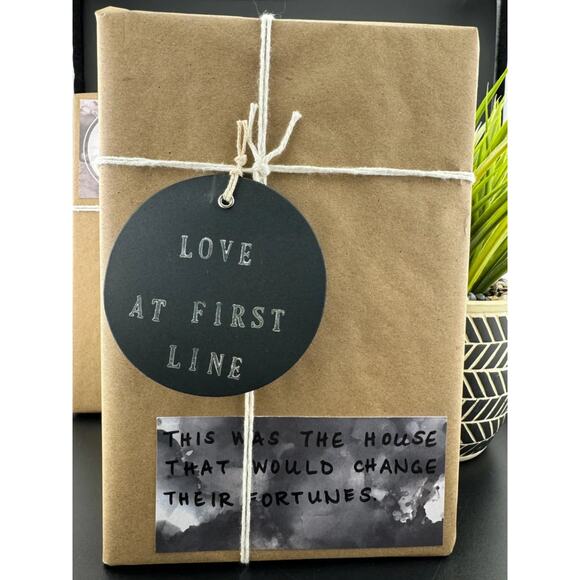 LOVE
AT FIRST
LINE
THIS WAS THE HOUSE
THAT WOULD CHANGE
THEIR FORTUNES.